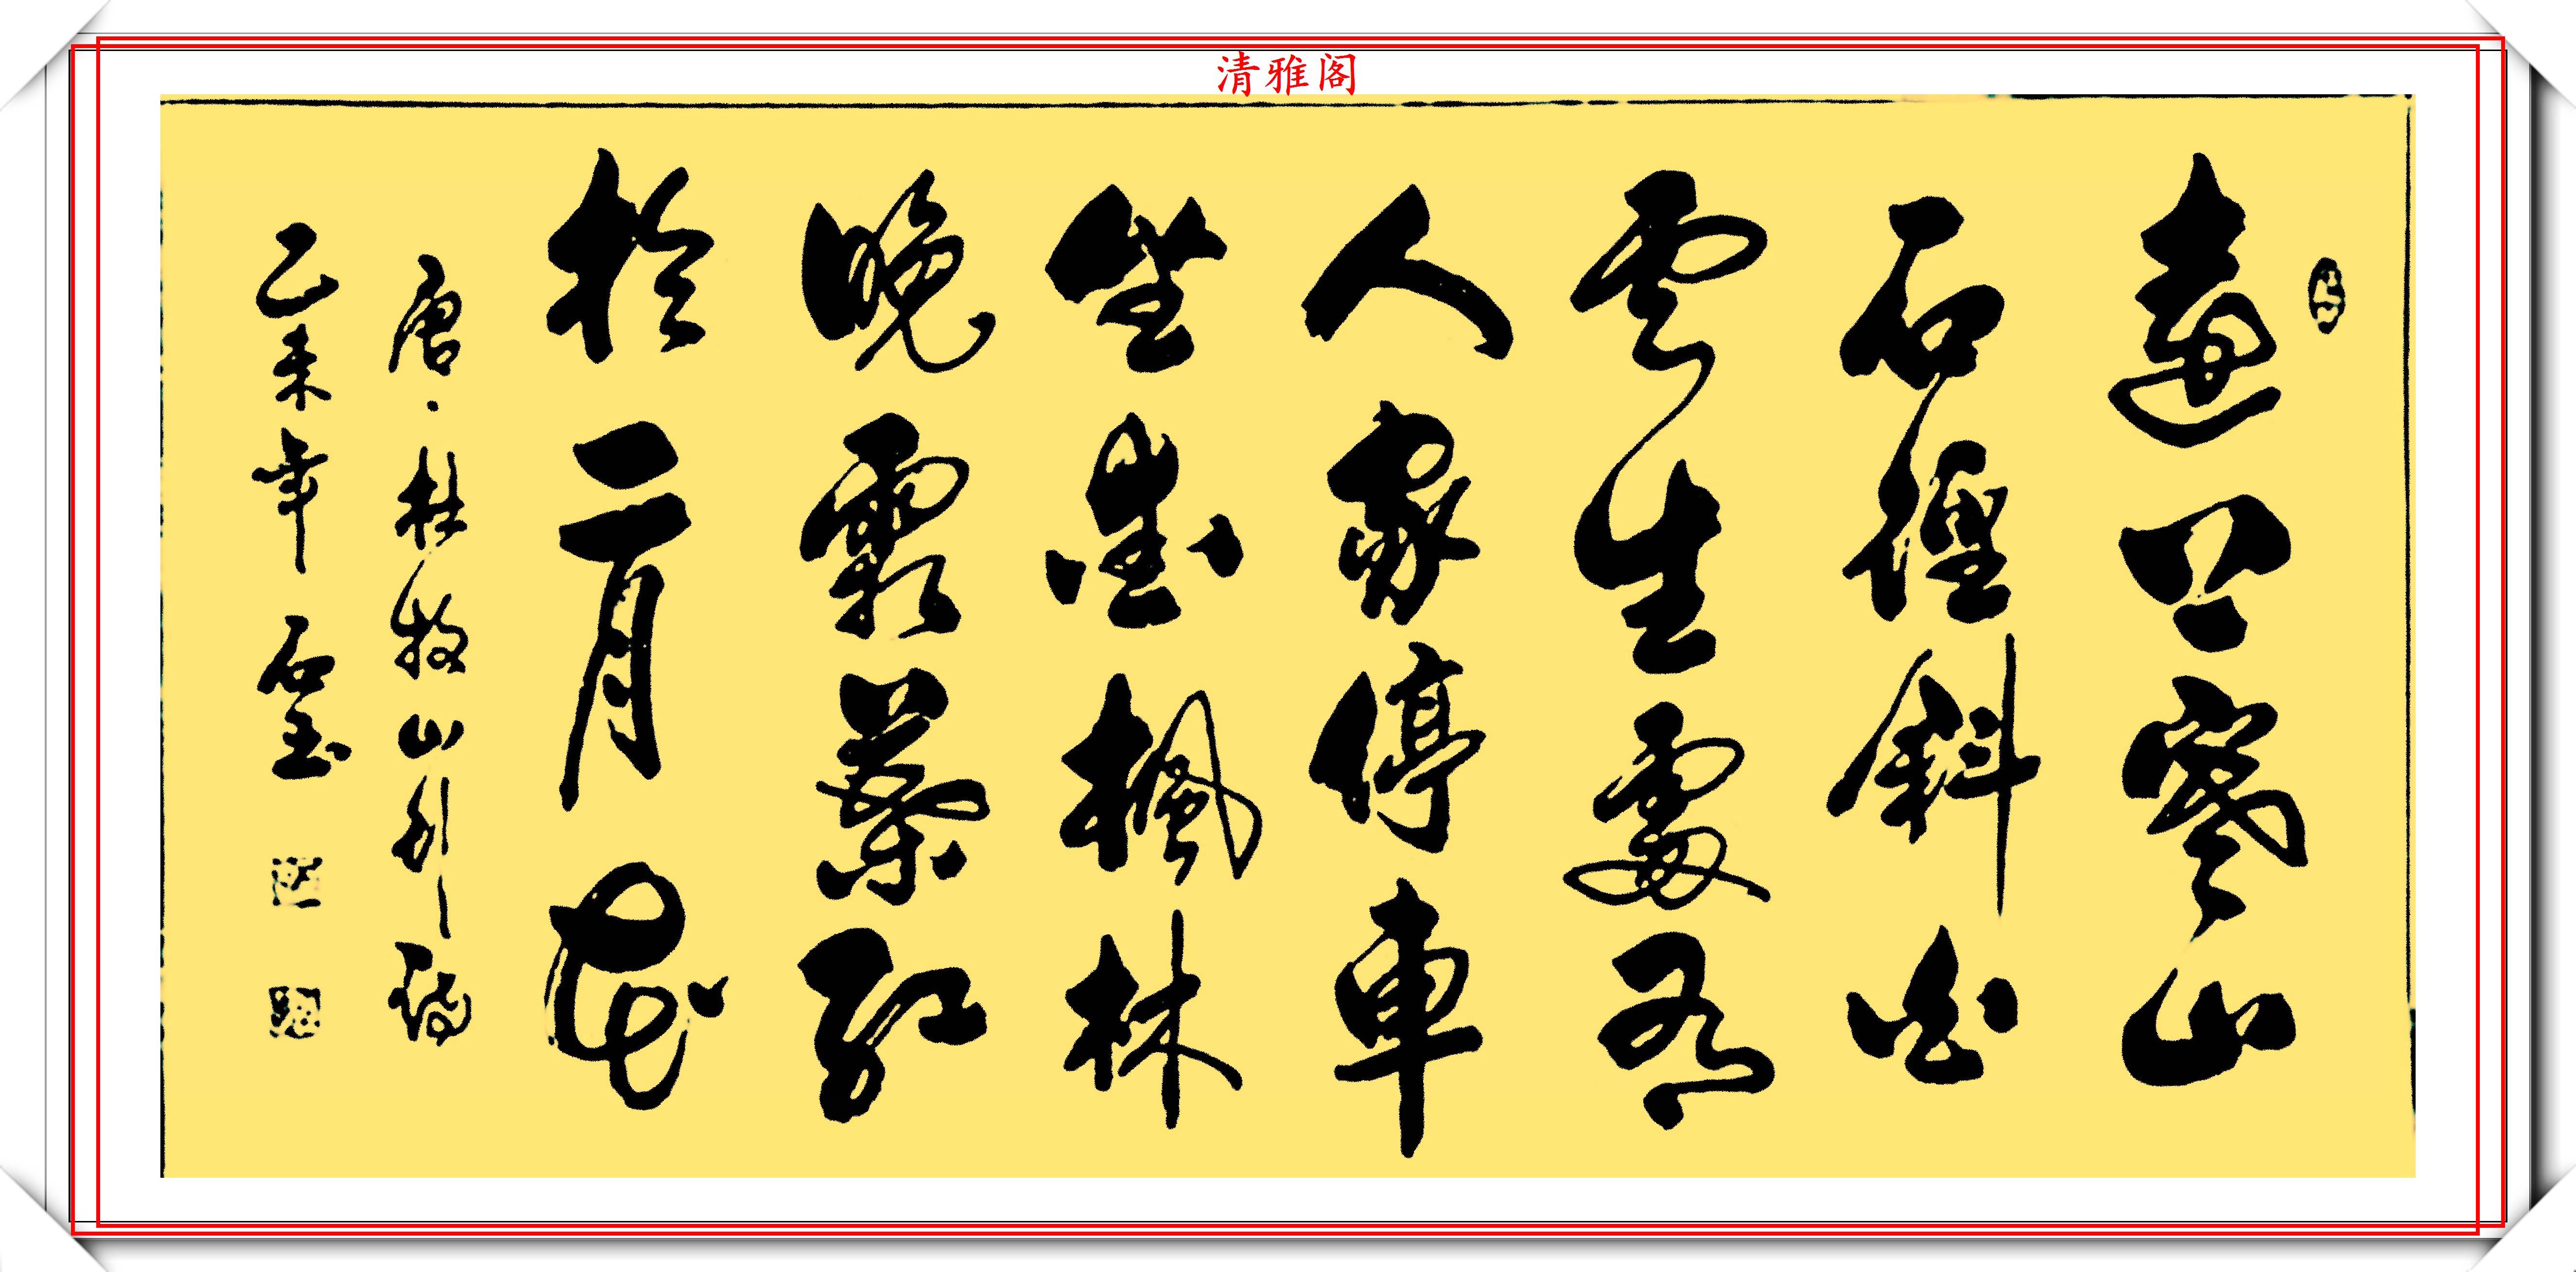 清雅阁
遠上寒山
石徑斜白
雲生處有
人家停車
坐愛楓林
晚霜葉紅
於二月花
唐·杜牧山行詩
乙未年 石玉